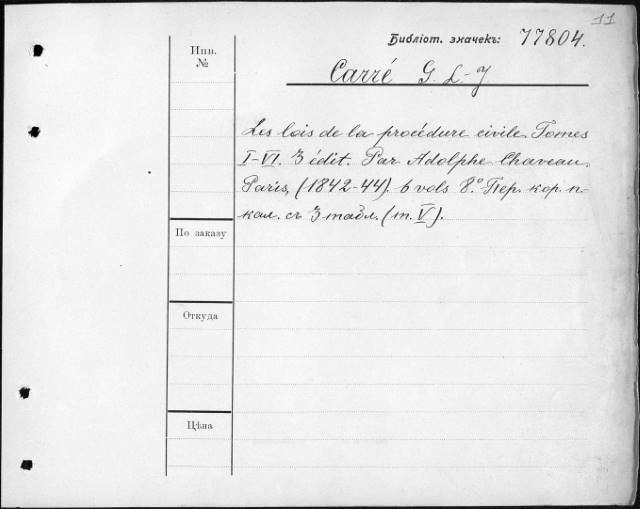 11
Библіот. значекъ: 77804.
Инв.
№
Carré G. L.-J
Les lois de la procédure civile. Tomes
I-VI. 3 édit. Par Adolphe Chaveau.
Paris, (1842-44). 6 vols 8.º Пер. кор. п-
кал. съ 3 табл. (т. V).
По заказу
Откуда
Цѣна